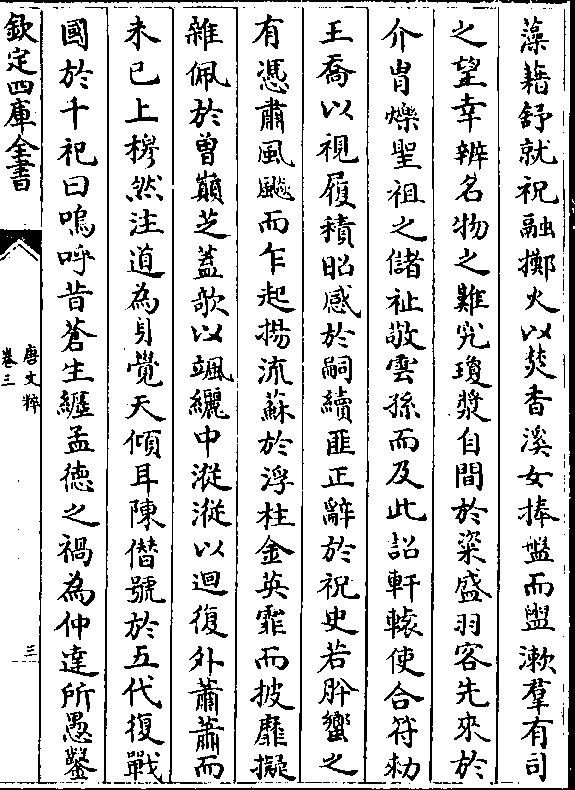 藻藉舒就祝融擲火以焚香溪女捧盤而盥漱羣有司
之望幸辨名物之難究瓊漿自間於粢盛羽客先來於
介胄爍聖祖之儲祉敬雲孫而及此詔軒轅使合符勅
王喬以視履積昭感於嗣續匪正辭於祝史若肸蠁之
有憑肅風飈而乍起揚流蘇於浮柱金英霏而披靡擬
雜佩於曾巔芝蓋欹以颯纚中漎漎以迴復外蕭蕭而
未已上穆然注道為身覺天傾耳陳僭號於五代復戰
國於千祀曰嗚呼昔蒼生纏孟德之禍為仲達所愚鑿
欽定四庫全書
唐文粹
卷三
三